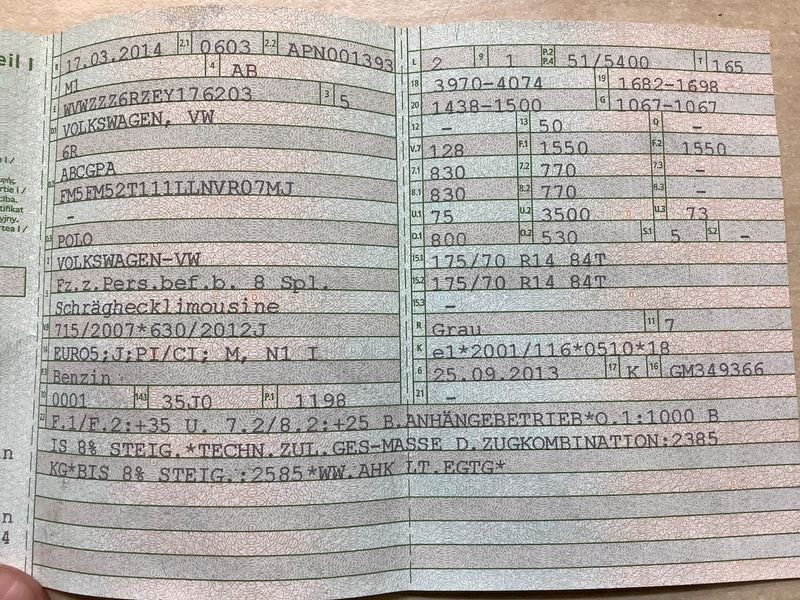 eil I
B 17.03.2014 2.1 0603 2.2 APN001393
J M1 4 AB
E WVWZZZ6RZEY176203 3 5
D.1 VOLKSWAGEN, VW
6R
D.2 ABCGPA
FM5FM52T111LLNVR07MJ
-
D.3 POLO
2 VOLKSWAGEN-VW
5 Fz.z.Pers.bef.b. 8 Spl.
Schräghecklimousine
V.9 715/2007*630/2012J
14 EURO5;J;PI/CI; M, N1 I
P.3 Benzin
10 0001 14.1 35J0 P.1 1198
L 2 9 1 P.2 P.4 51/5400 T 165
18 3970-4074 19 1682-1698
20 1438-1500 G 1067-1067
12 - 13 50 Q -
V.7 128 F.1 1550 F.2 1550
7.1 830 7.2 770 7.3 -
8.1 830 8.2 770 8.3 -
U.1 75 U.2 3500 U.3 73
O.1 800 O.2 530 S.1 5 S.2 -
15.1 175/70 R14 84T
15.2 175/70 R14 84T
15.3 -
R Grau 11 7
K e1*2001/116*0510*18
6 25.09.2013 17 K 16 GM349366
21 -
22 F.1/F.2:+35 U. 7.2/8.2:+25 B.ANHÄNGEBETRIEB*O.1:1000 B
IS 8% STEIG.*TECHN.ZUL.GES-MASSE D.ZUGKOMBINATION:2385
KG*BIS 8% STEIG.:2585*WW.AHK LT.EGTG*
n
n
4